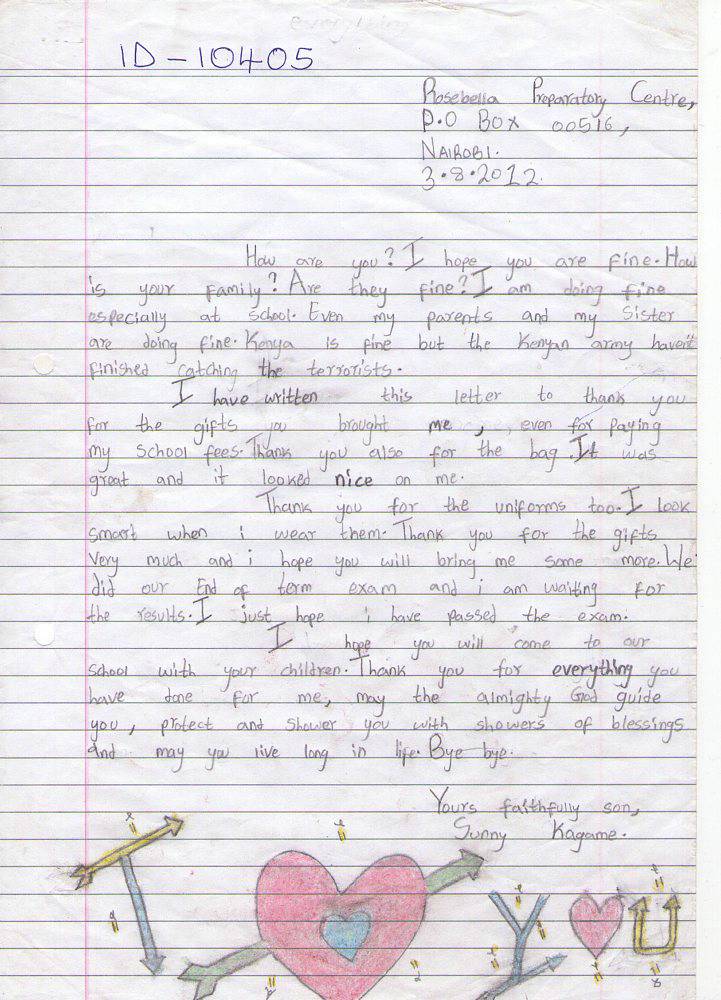 everything
ID-10405
Rosebella Preparatory Centre,
P.O Box 00516,
NAIROBI.
3.8.2012.
How are you? I hope you are fine. How
is your family? Are they fine? I am doing fine
especially at school. Even my parents and my Sister
are doing fine. Kenya is fine but the Kenyan army haven't
finished catching the terrorists.
I have written this letter to thank you
for the gifts you brought me, even for paying
my school fees. Thank you also for the bag. It was
great and it looked nice on me.
Thank you for the uniforms too. I look
smart when i wear them. Thank you for the gifts
Very much and i hope you will bring me some more. We
did our End of term exam and i am waiting for
the results. I just hope i have passed the exam.
I hope you will come to our
school with your children. Thank you for everything you
have done for me, may the almighty God guide
you, protect and shower you with showers of blessings
and may you live long in life. Bye bye.
Yours faithfully son,
Sunny Kagame.
T Y U